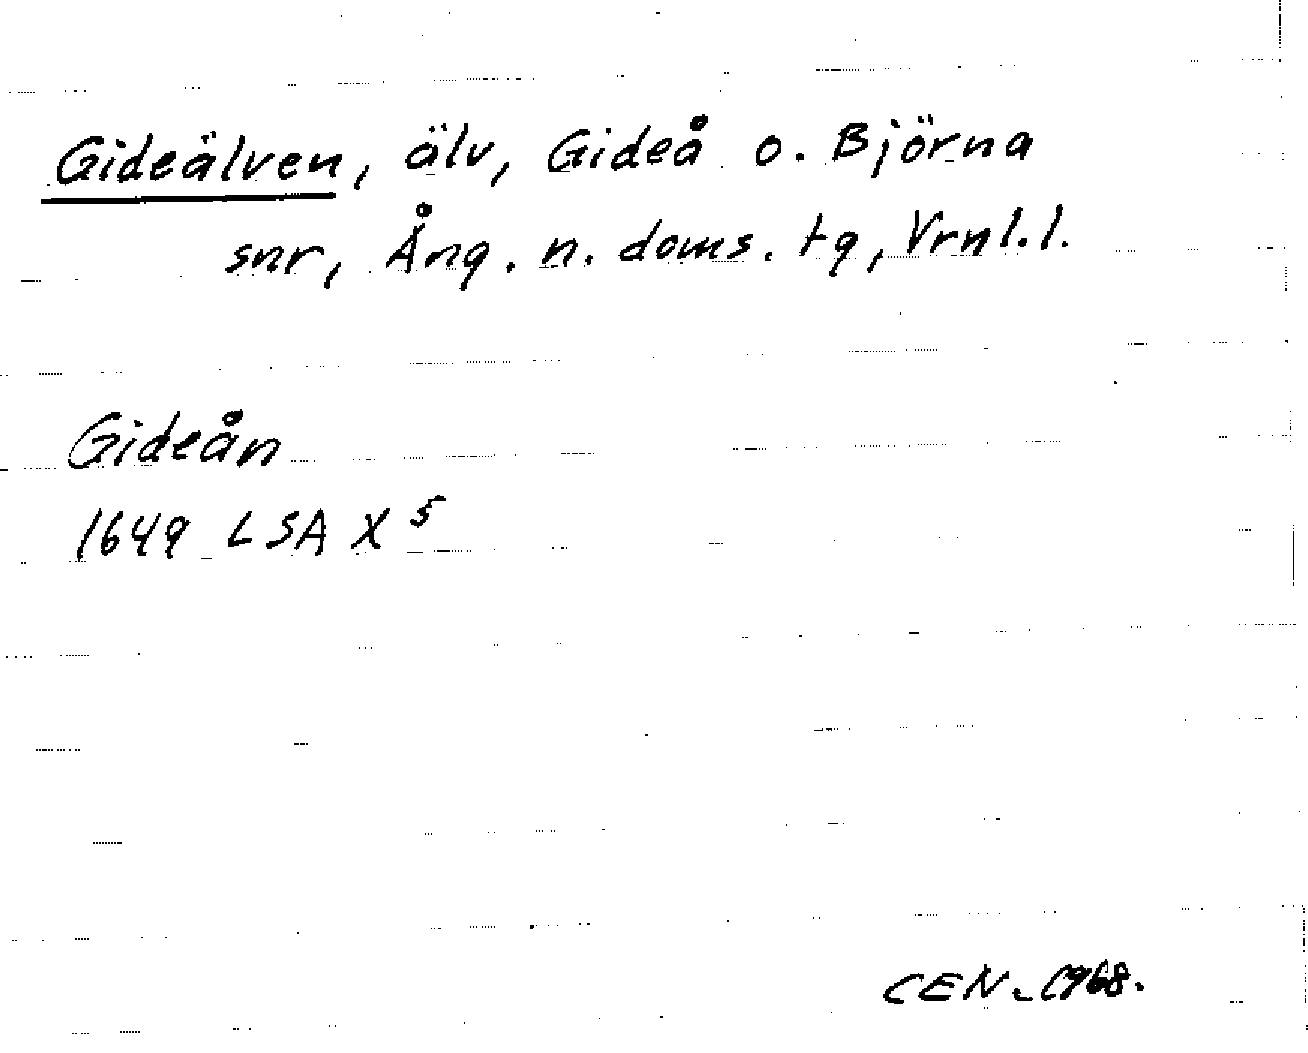 Gideälven, älv, Gideå o. Björna
snr, Ång. n. doms. tg, Vrnl.l.
Gideån
1649 LSA X 5
CEN. 1968.